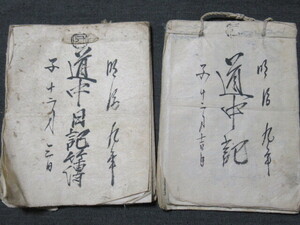 明治九年
道中記
子十二月吉日
明治九年
道中日記簿
子十二月三日